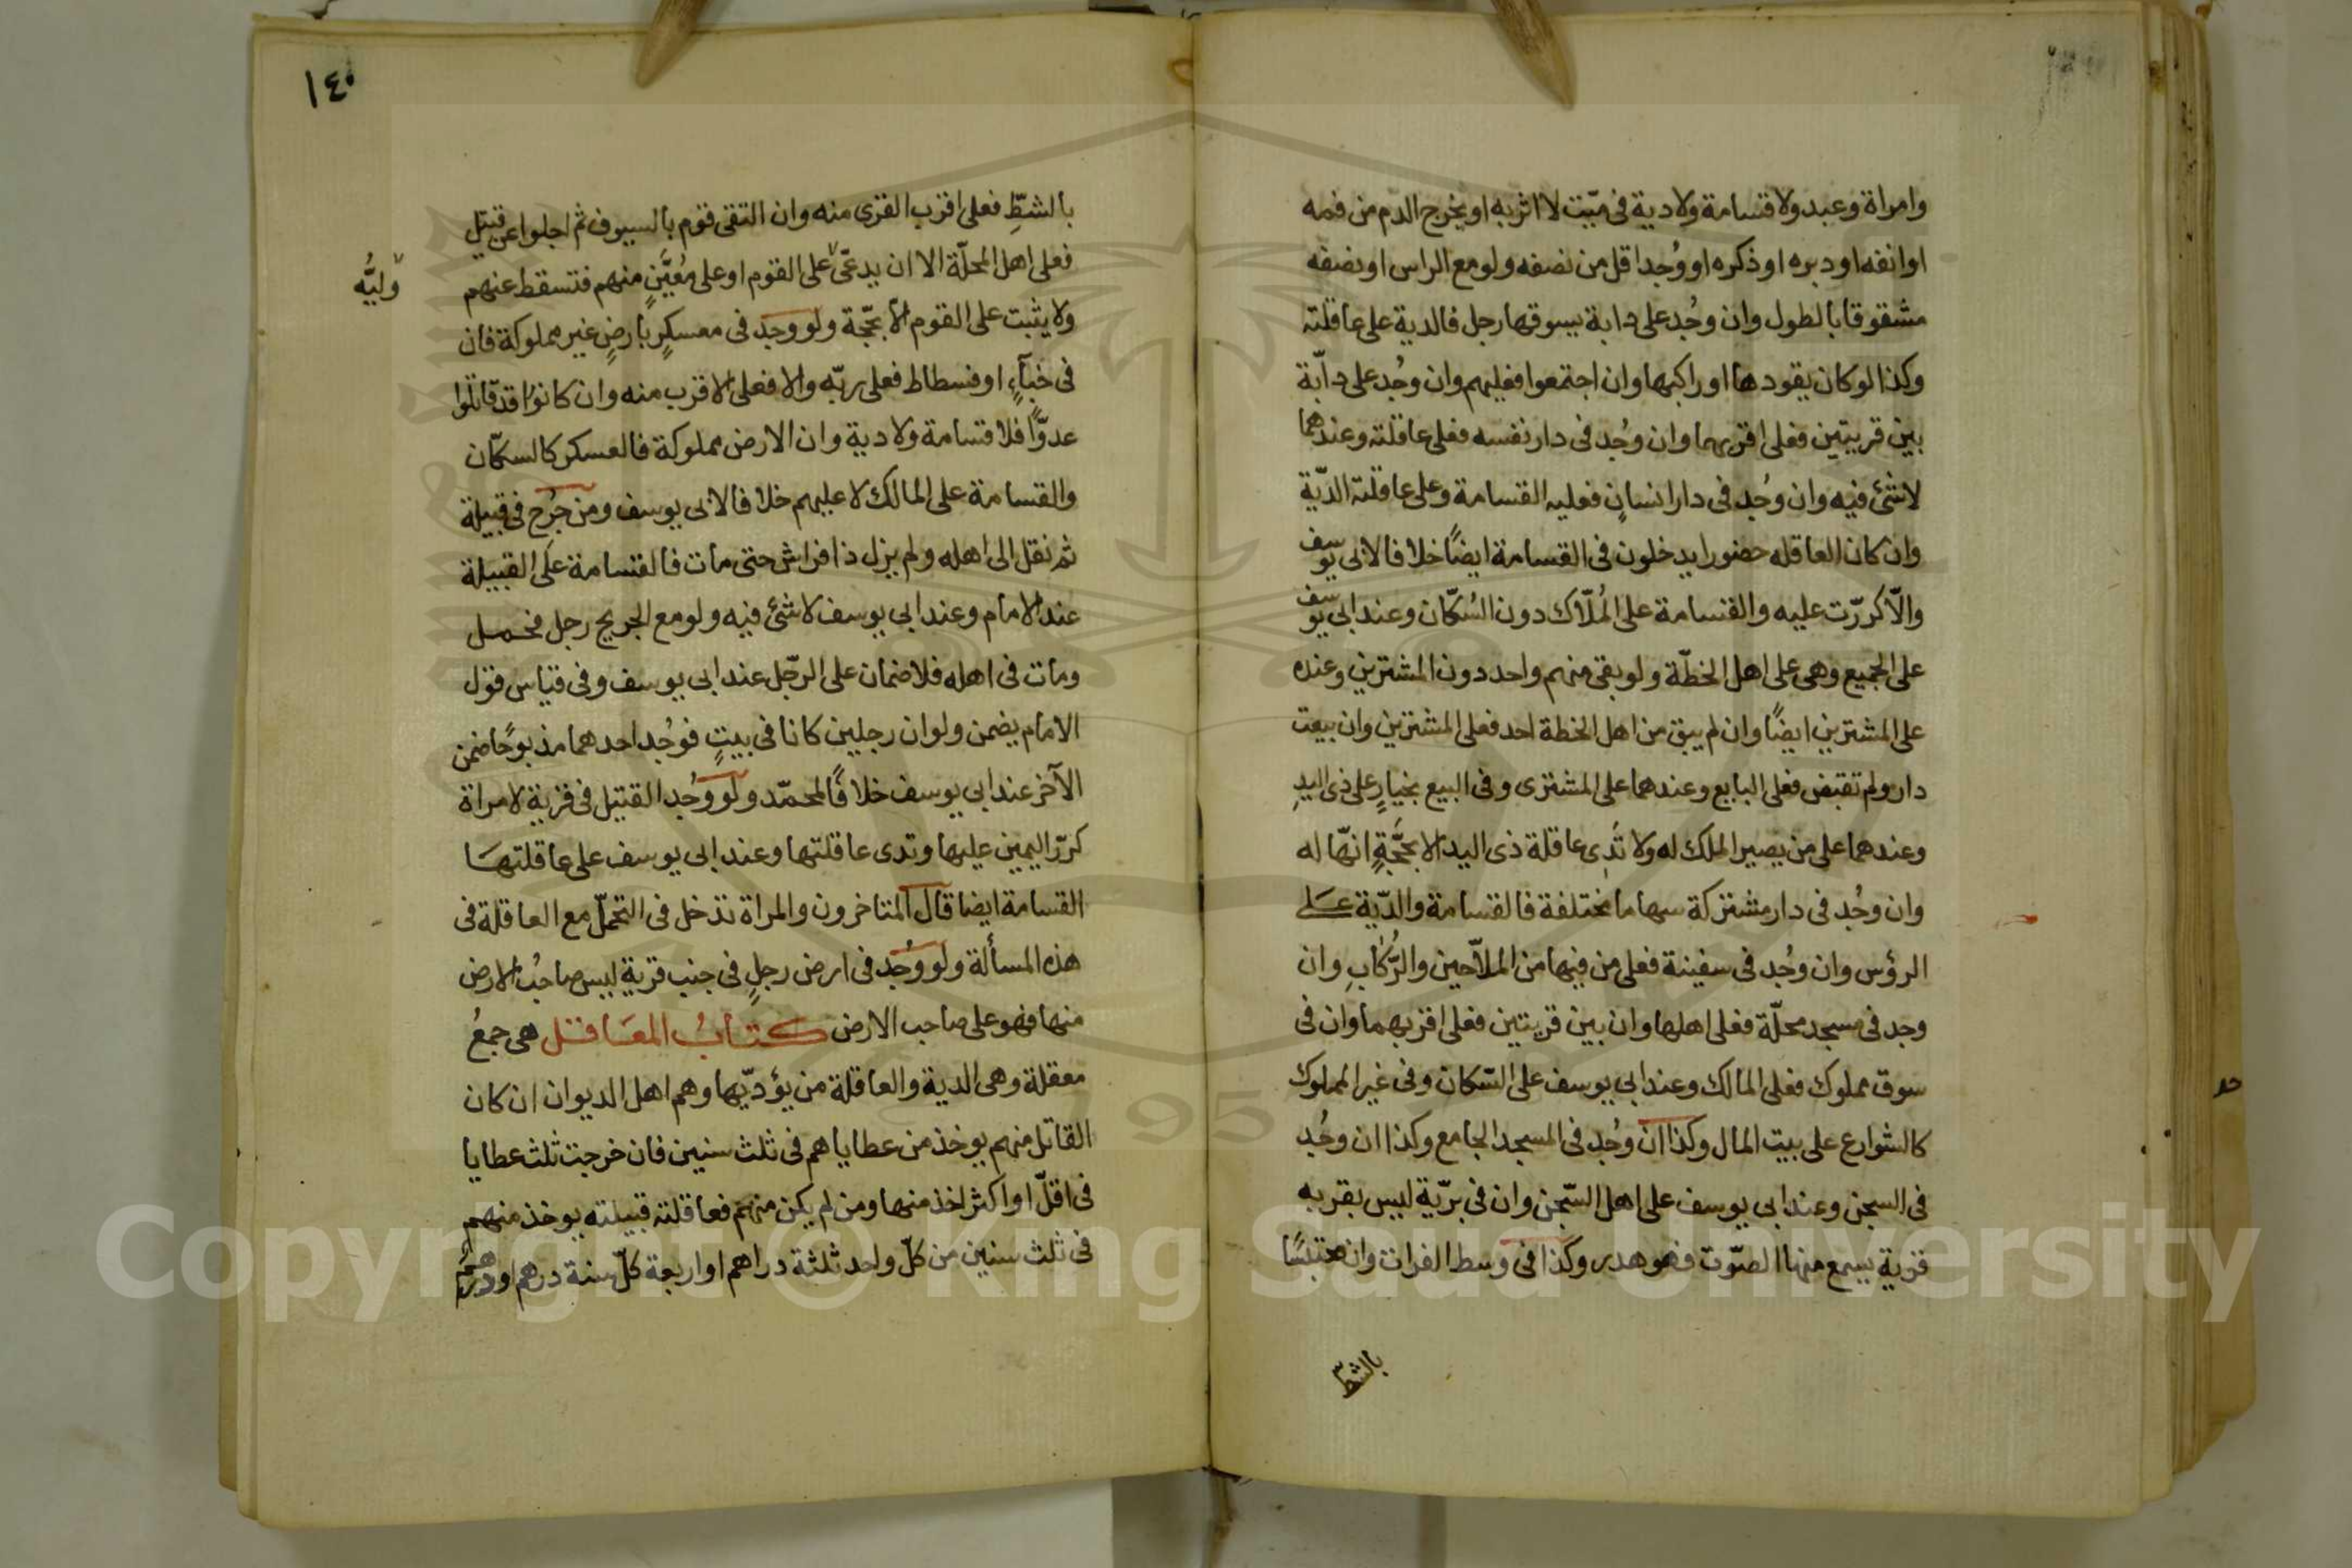 وامراة وعبد ولا قسامة ولا دية فى ميّت لا اثر به او يخرج الدم من فمه
او انفه او دبره او ذكره او وُجد اقل من نصفه ولو مع الراس او نصفه
مشقوقا بالطول وان وجُد على دابة يسوقها رجل فالدية على عاقلته
وكذا لو كان يقودها او راكبها وان اجتمعوا فعليهم وان وجُد على دابّة
بين قريتين فعلى اقربهما وان وجُد فى دار نفسه فعلى عاقلته وعندهما
لا شئ فيه وان وجُد فى دار انسانٍ فعليه القسامة وعلى عاقلته الدّية
وان كان العاقله حضورا يدخلون فى القسامة ايضًا خلافا لابى يوسف
والّا كررّت عليه والقسامة على المُلّاك دون السُكّان وعند ابى يوسف
على الجميع وهى على اهل الخطّة ولو بقى منهم واحد دون المشترين وعنده
على المشترين ايضًا وان لم يبق من اهل الخطة احد فعلى المشترين وان بيعت
دار ولم تقبض فعلى البايع وعندهما على المشترى وفى البيع بخيارٍ على ذى اليدِ
وعندهما على من يصير الملك له ولا تَدِى عاقلة ذى اليد الا بحجّةٍ انّها له
وان وجُد فى دار مشتركة سهاما مختلفة فالقسامة والدّية على
الرؤس وان وجُد فى سفينة فعلى من فيها من الملاّحين والرُّكّابِ وان
وجد فى مسجد محلّة فعلى اهلها وان بين قريتين فعلى اقربهما وان فى
سوق مملوك فعلى المالك وعند ابى يوسف على السّكان وفى غير المملوك
كالشوارع على بيت المال وكذا ان وجُد فى المسجد الجامع وكذا ان وجُد
فى السجن وعند ابى يوسف على اهل السّجن وان فى برّية ليس بقربه
قرية يسمع منها الصّوت فهو هدر وكذا فى وسط الفرات وان محتبسًا
بالشطّ
١٤٠
بالشطِّ فعلى اقرب القرى منه وان التقى قوم بالسيوف ثم اجلوا عن قتيل
فعلى اهل المحلّة الا ان يدعّى على القوم او على مُعيَّنٍ منهم فتسقط عنهم
وليُّه
ولا يثبت على القوم الّا بحّجة ولو وجد فى معسكرٍ بارضٍ غير مملوكة فان
فى خبآءٍ او فسطاط فعلى ربّه والا فعلى الاقرب منه وان كانوا قد قاتلوا
عدوًّا فلا قسامة ولا دية وان الارض مملوكة فالعسكر كالسكّان
والقسامة على المالك لا عليهم خلافا لابى يوسف ومن جُرح فى قبيلة
ثم نقل الى اهله ولم يزل ذا فراش حتى مات فالقسامة على القبيلة
عند الامام وعند ابى يوسف لا شئ فيه ولو مع الجريح رجل فحمل
ومات فى اهله فلا ضمان على الرّجل عند ابى يوسف وفى قياس قول
الامام يضمن ولو ان رجلين كانا فى بيتٍ فوُجد احدهما مذبوحًا ضمن
الآخر عند ابى يوسف خلافًا لمحمّد ولو وُجد القتيل فى قرية لامراة
كررّ اليمين عليها وتدى عاقلتها وعند ابى يوسف على عاقلتها
القسامة ايضا قال المتاخرون والمراة تدخل فى التحمّل مع العاقلة فى
هذه المسألة ولو وُجد فى ارض رجلٍ فى جنب قرية ليس صاحبُ الارض
منها فهو على صاحب الارض كتابُ المعاقل هى جمعُ
معقلة وهى الدية والعاقلة من يؤدّيها وهم اهل الديوان ان كان
القاتل منهم يوخذ من عطاياهم فى ثلث سنين فان خرجت ثلث عطايا
فى اقلّ او اكثر اخذ منها ومن لم يكن منهم فعاقلته قبيلته يوخذ منهم
فى ثلث سنين من كلّ واحد ثلثة دراهم او اربعة كلّ سنة درهم او درهم
Copyright © King Saud University